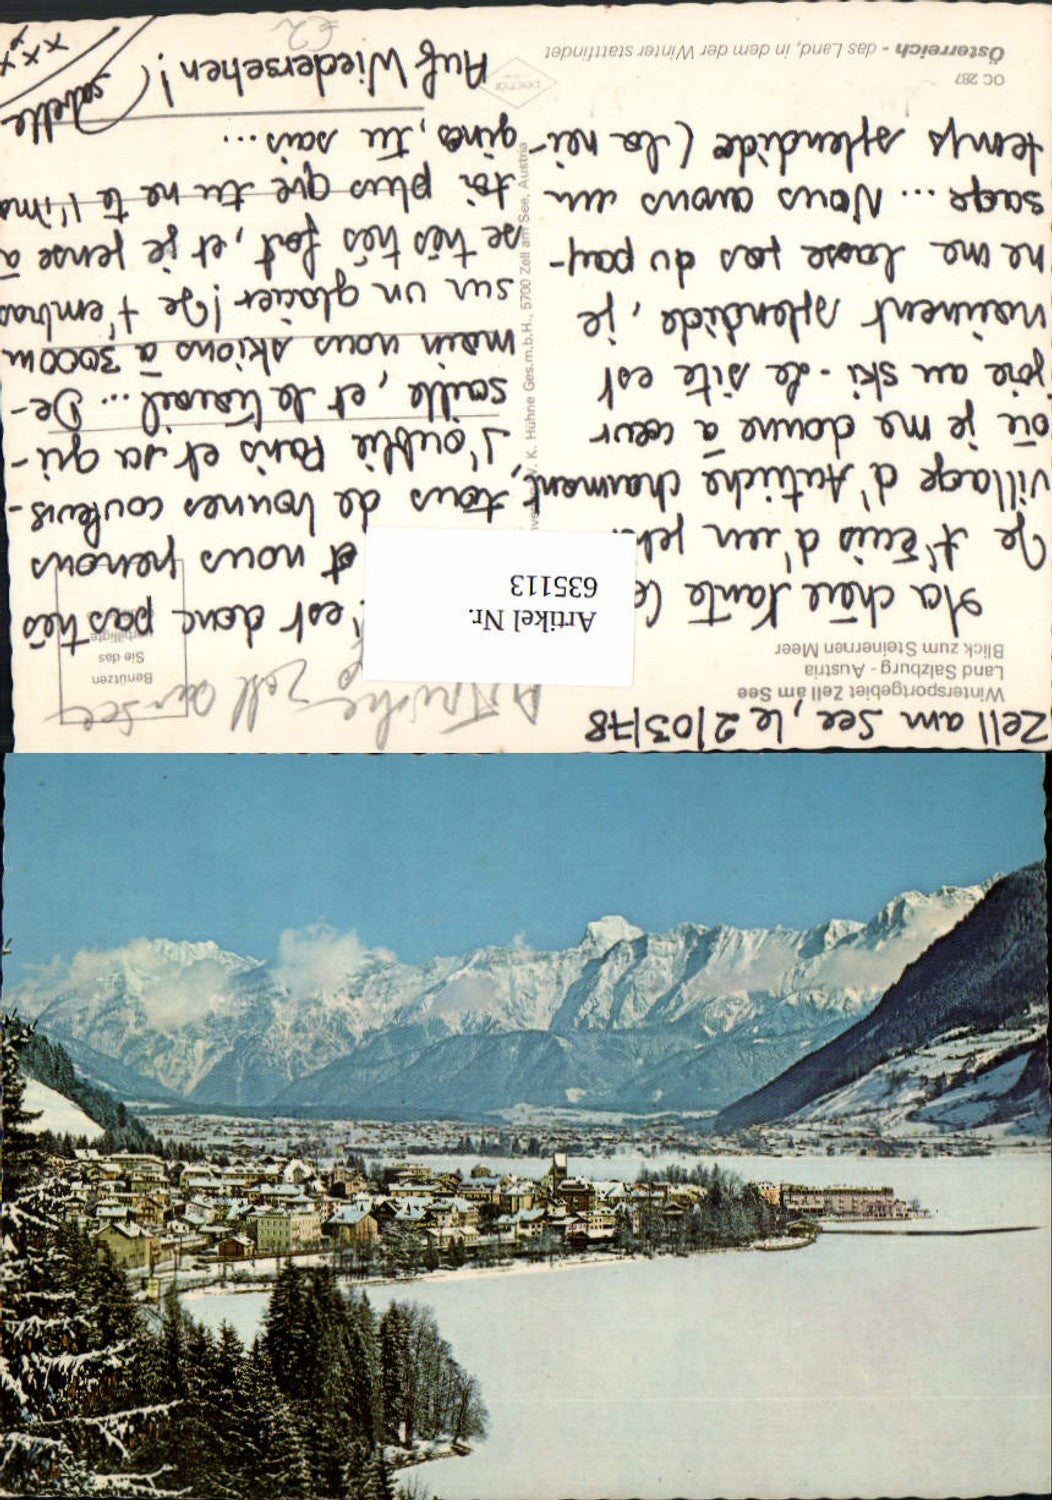 Zell am See, le 2/03/78
Wintersportgebiet Zell am See
Land Salzburg - Austria
Blick zum Steinernen Meer
Ma chère Tante
Je t'écris d'un
village d'Autriche charmant,
où je me donne à cœur
joie au ski - Le site est
vraiment splendide, je
ne me lasse pas du pay-
sage ... Nous avons un
temps splendide (la nei-
OC 287
Österreich - das Land, in dem der Winter stattfindet
Artikel Nr.
635113
W. K. Hühne Ges.m.b.H., 5700 Zell am See, Austria
Zell am See
Benützen
Sie das
verbilligte
est donc pas très
et nous prenons
tous de bonnes couleurs -
J'oublie Paris et sa gri-
saille, et le travail ... De-
main nous skions à 3000m
sur un glacier! Je t'embras
se très très fort, et je pense à
toi plus que tu ne te l'ima
gines, tu sais ...
Auf Wiedersehen!
€2
xxx